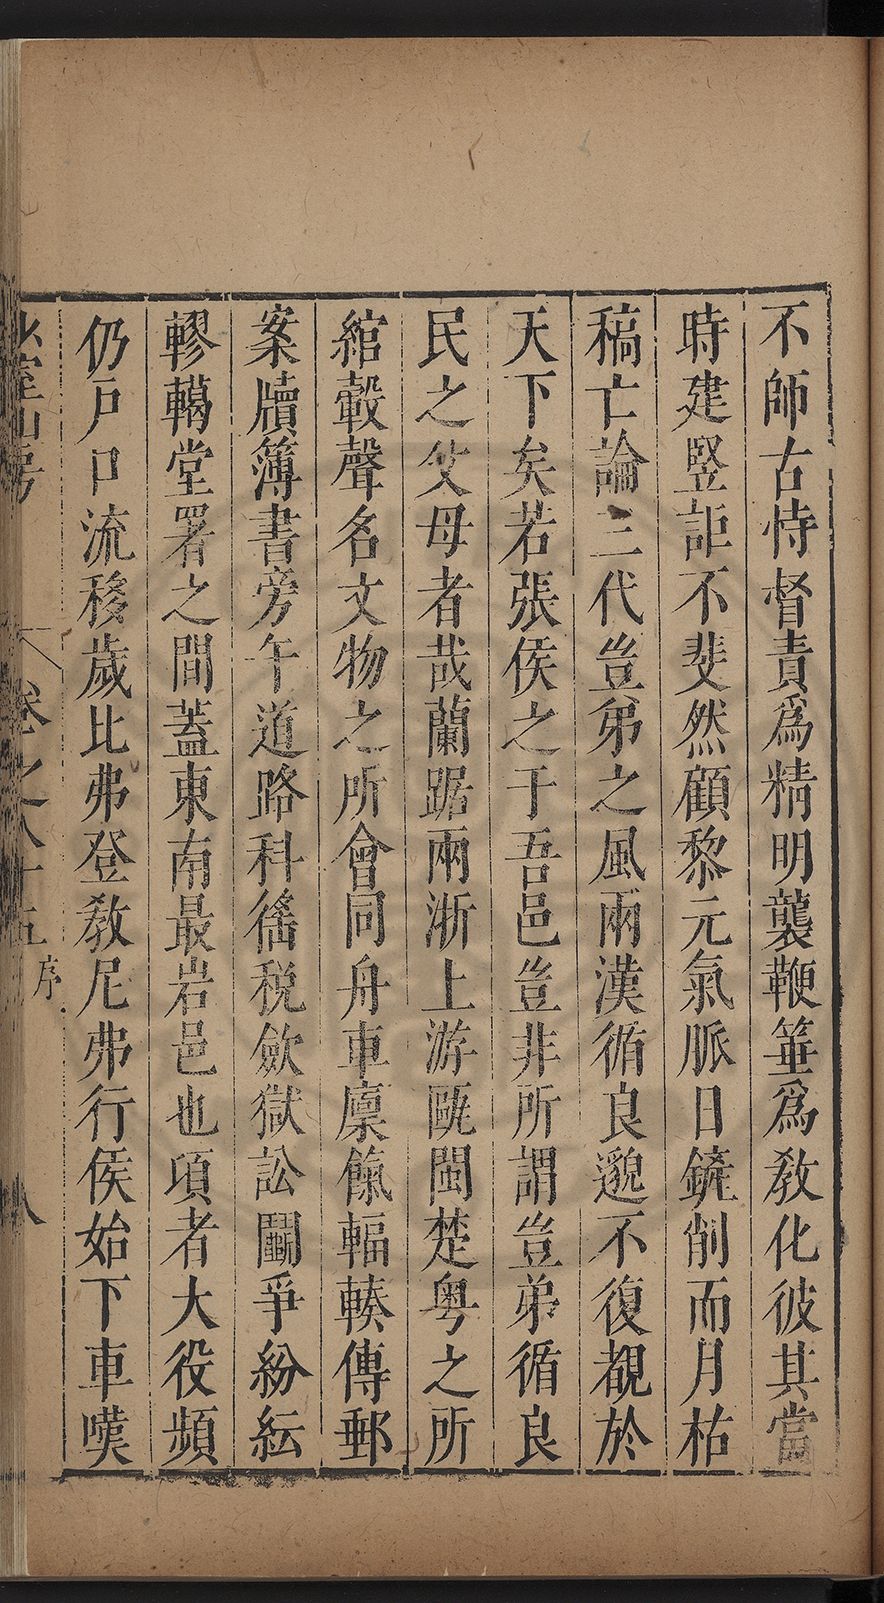 不師古恃督責爲精明襲鞭箠爲教化彼其當
時建竪詎不斐然顧黎元氣脈日鏟削而月枯
稿亡論三代豈弟之風兩漢循良邈不復覩於
天下矣若張侯之于吾邑豈非所謂豈弟循良
民之父母者哉蘭踞兩浙上游甌閩楚粤之所
綰轂聲名文物之所會同舟車廩餼輻輳傳郵
案牘簿書旁午道路科徭税歛獄訟鬭爭紛紜
轇轕堂署之間蓋東南最岩邑也項者大役頻
仍戸口流移歲比弗登教尼弗行侯始下車嘆
室山房
卷之八十五
序
八